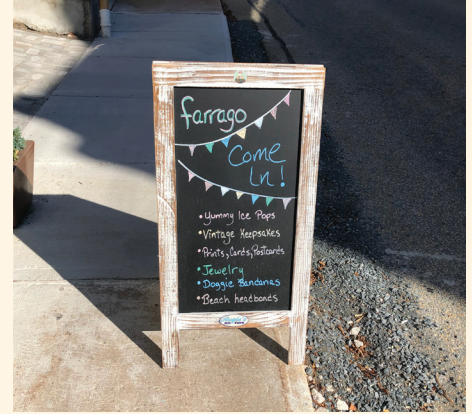 farrago
Come
In!
• Yummy Ice Pops
• Vintage Keepsakes
• Prints, Cards, Postcards
• Jewelry
• Doggie Bandanas
• Beach headbands